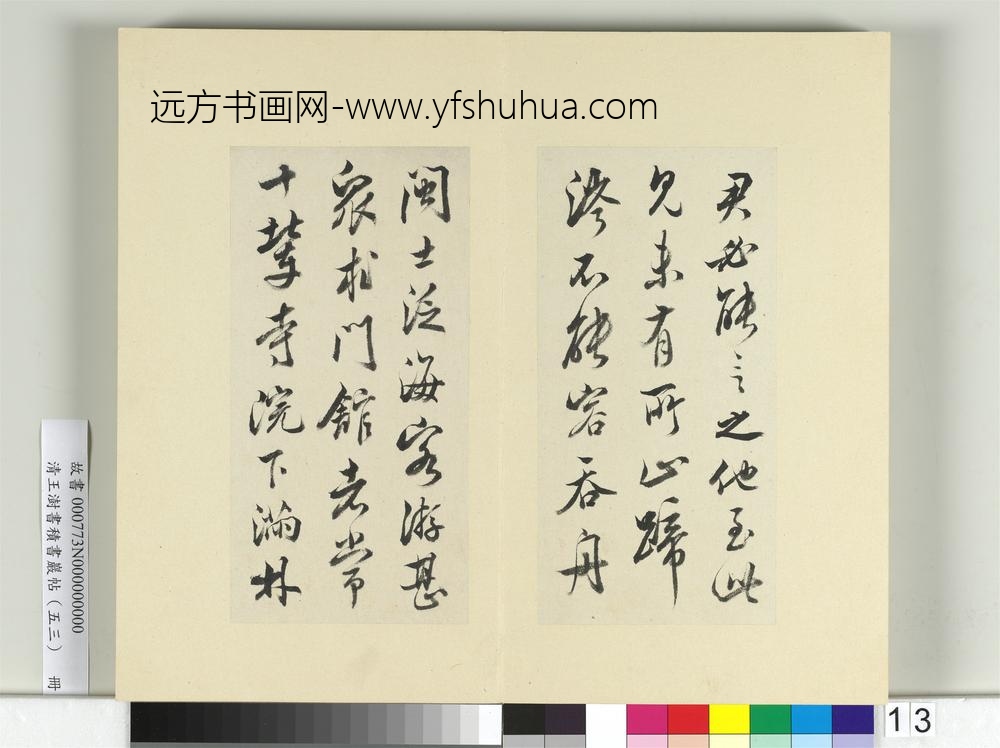 远方书画网-www.yfshuhua.com
君必能言之他至此
見未有所止蹄
涔不能容吞舟
閩士泛海客游甚
衆求門館者常
十輩寺院下滿林
故書 000773N000000000
清王澍書積書巖帖（五三） 冊
13